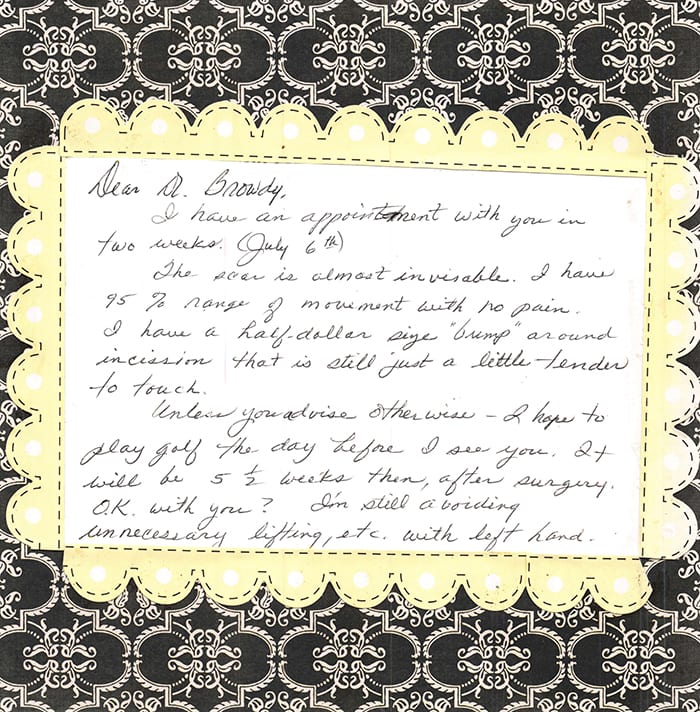 Dear Dr. Browdy,
I have an appointment with you in
two weeks. (July 6th)
The scar is almost invisable. I have
95 % range of movement with no pain.
I have a half-dollar size "bump" around
incission that is still just a little tender
to touch.
Unless you advise otherwise - I hope to
play golf the day before I see you. It
will be 5 1/2 weeks then, after surgery.
O.K. with you? I'm still avoiding
unnecessary lifting, etc. with left hand.